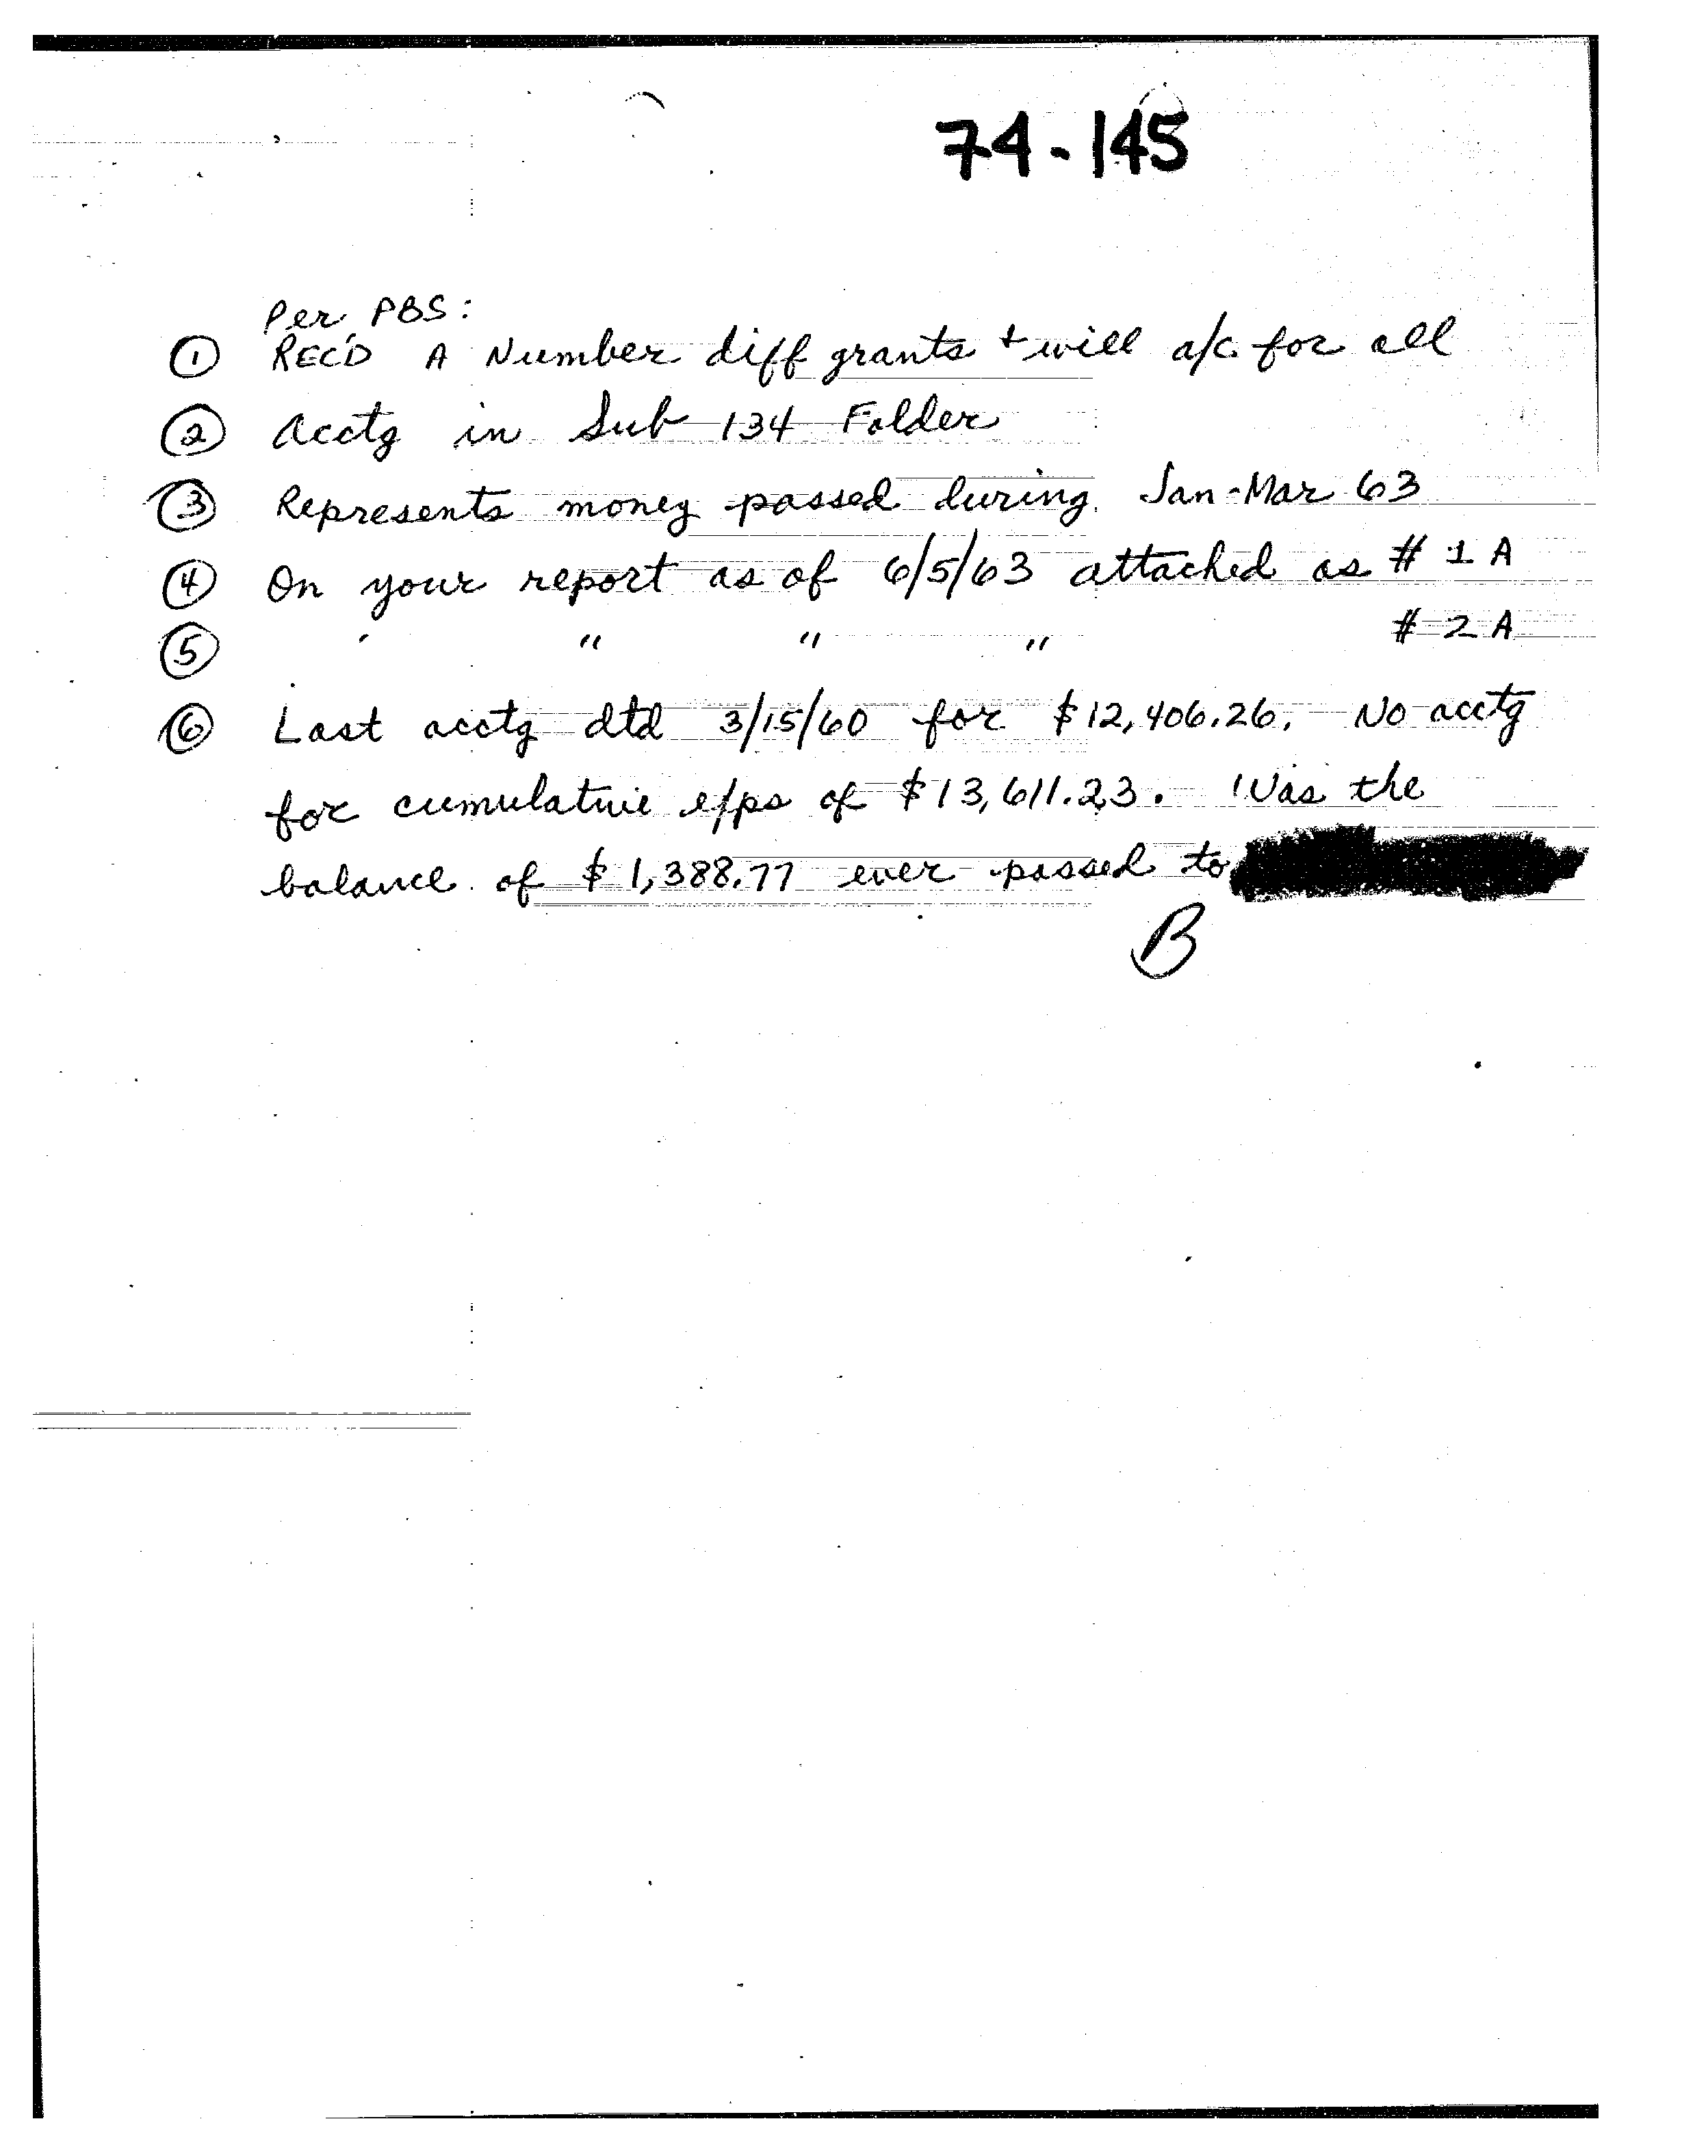 74-145
Per PBS:
① REC'D A Number diff grants + will a/c for all
② Acctg in Sub 134 Folder
③ Represents money passed during Jan-Mar 63
④ On your report as of 6/5/63 attached as # 1 A
⑤ " " " " # 2 A
⑥ Last acctg dtd 3/15/60 for $12,406.26. No acctg
for cumulative e/ps of $13,611.23. Was the
balance of $1,388.77 ever passed to
B